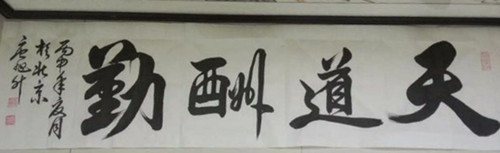 天道酬勤
丙申年夏月
於北京